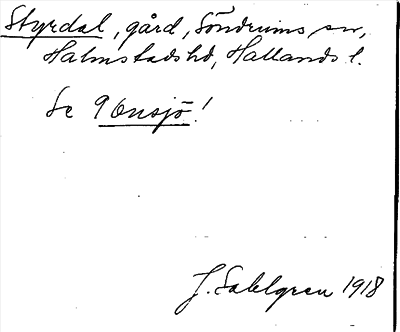 Styrdal, gård, Söndrums sn,
Halmstads hd, Hallands l.
Se Onsjö!
J. Sahlgren 1918